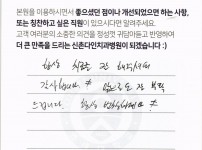 본원을 이용하시면서 좋으셨던 점이나 개선되었으면 하는 사항,
또는 칭찬하고 싶은 직원이 있으시다면 알려주세요.
고객 여러분의 소중한 의견을 정성껏 귀담아듣고 반영하여
더 큰 만족을 드리는 신촌다인치과병원이 되겠습니다 :)
항상 치료를 잘 해주셔서
감사합니다 앞으로도 잘 부탁
드립니다. 항상